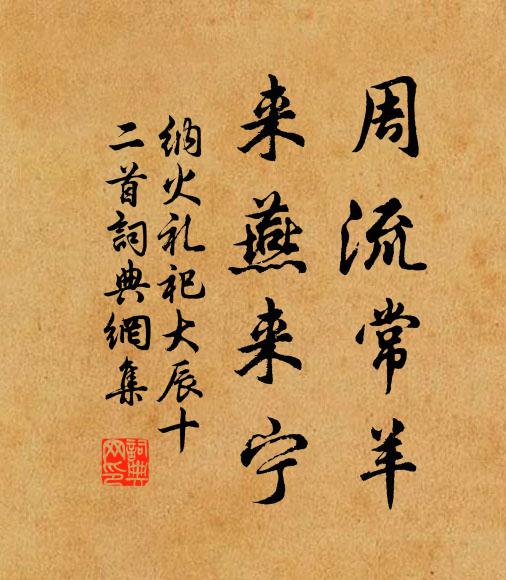 周流常羊
来燕来宁
纳火礼祀大辰十
二首詞典網集
詞典网印